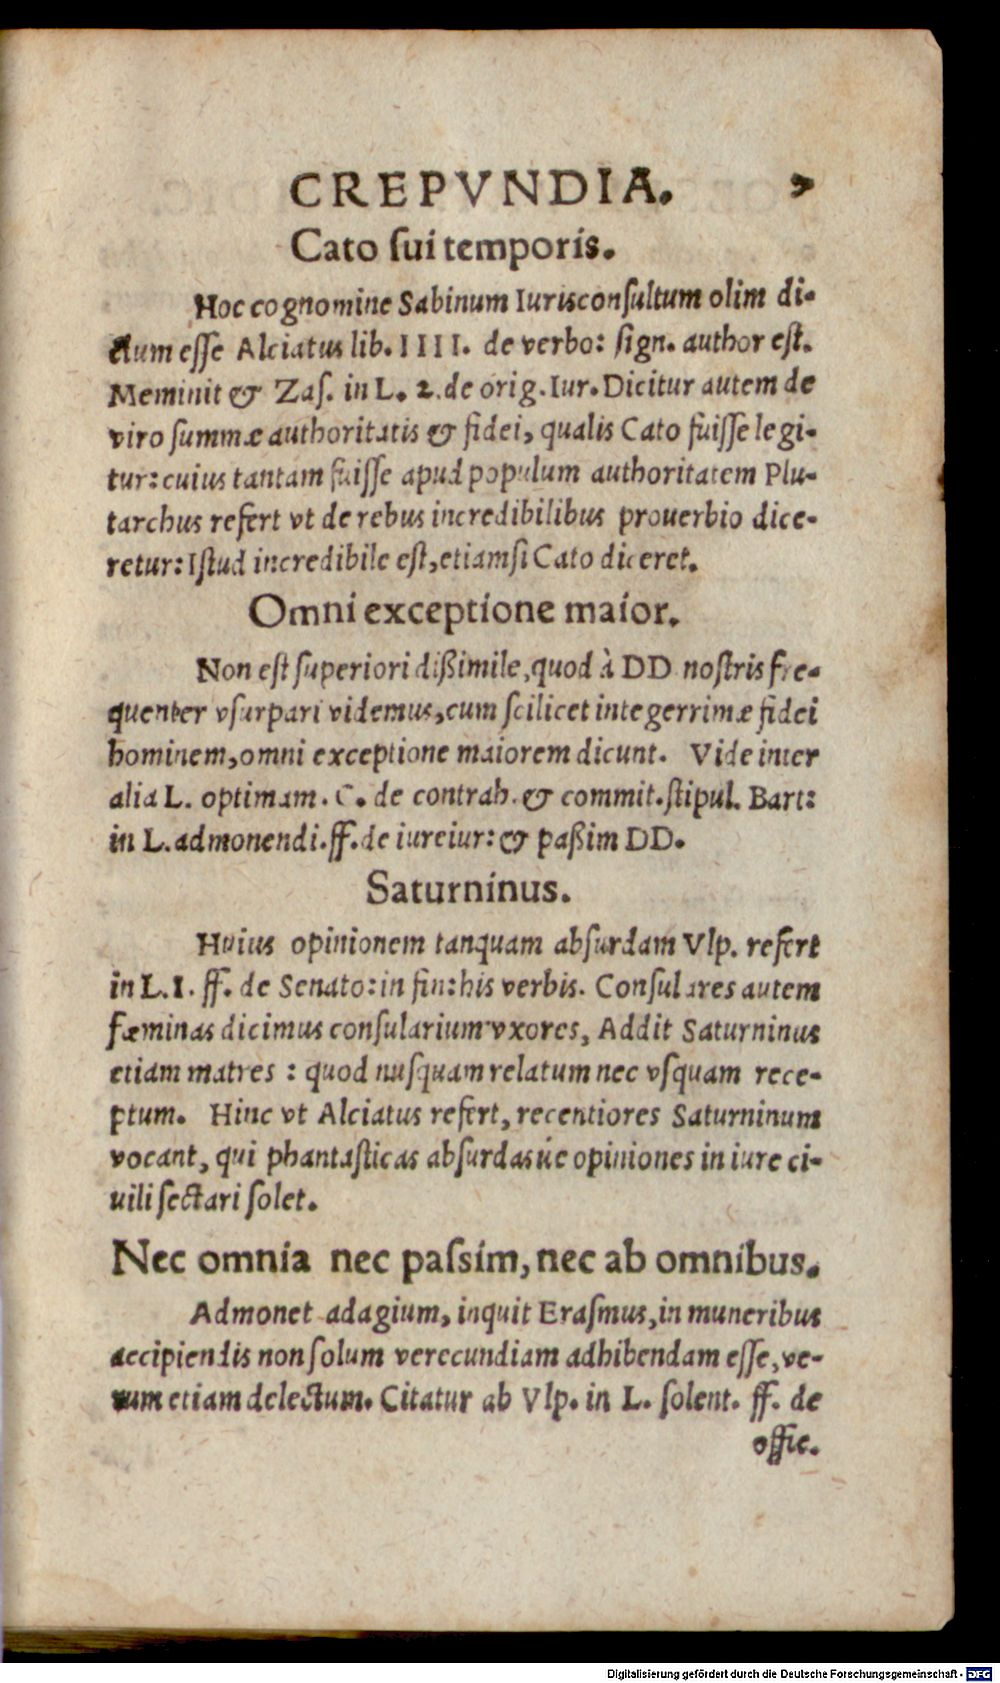 CREPVNDIA. 9
Cato ſui temporis.
Hoc cognomine Sabinum Iurisconſultum olim di-
ctum eſſe Alciatus lib. IIII. de verbo: ſign. author eſt.
Meminit & Zaſ. in L. 2. de orig. Iur. Dicitur autem de
viro ſummæ authoritatis & fidei, qualis Cato fuiſſe legi-
tur: cuius tantam fuiſſe apud populum authoritatem Plu-
tarchus refert vt de rebus incredibilibus prouerbio dice-
retur: Iſtud incredibile eſt, etiamſi Cato diceret.
Omni exceptione maior.
Non eſt ſuperiori dißimile, quod à DD noſtris fre-
quenter vſurpari videmus, cum ſcilicet integerrimæ fidei
hominem, omni exceptione maiorem dicunt. Vide inter
alia L. optimam. C. de contrah. & commit. ſtipul. Bart:
in L. admonendi. ff. de iureiur: & paßim DD.
Saturninus.
Huius opinionem tanquam abſurdam Vlp. refert
in L. I. ff. de Senato: in fin: his verbis. Conſulares autem
fæminas dicimus conſularium vxores, Addit Saturninus
etiam matres : quod nuſquam relatum nec vſquam rece-
ptum. Hinc vt Alciatus refert, recentiores Saturninum
vocant, qui phantaſticas abſurdasúe opiniones in iure ci-
uili ſectari ſolet.
Nec omnia nec paſsim, nec ab omnibus.
Admonet adagium, inquit Eraſmus, in muneribus
accipiendis non ſolum verecundiam adhibendam eſſe, ve-
rum etiam delectum. Citatur ab Vlp. in L. ſolent. ff. de
offic.
Digitalisierung gefördert durch die Deutsche Forschungsgemeinschaft - DFG